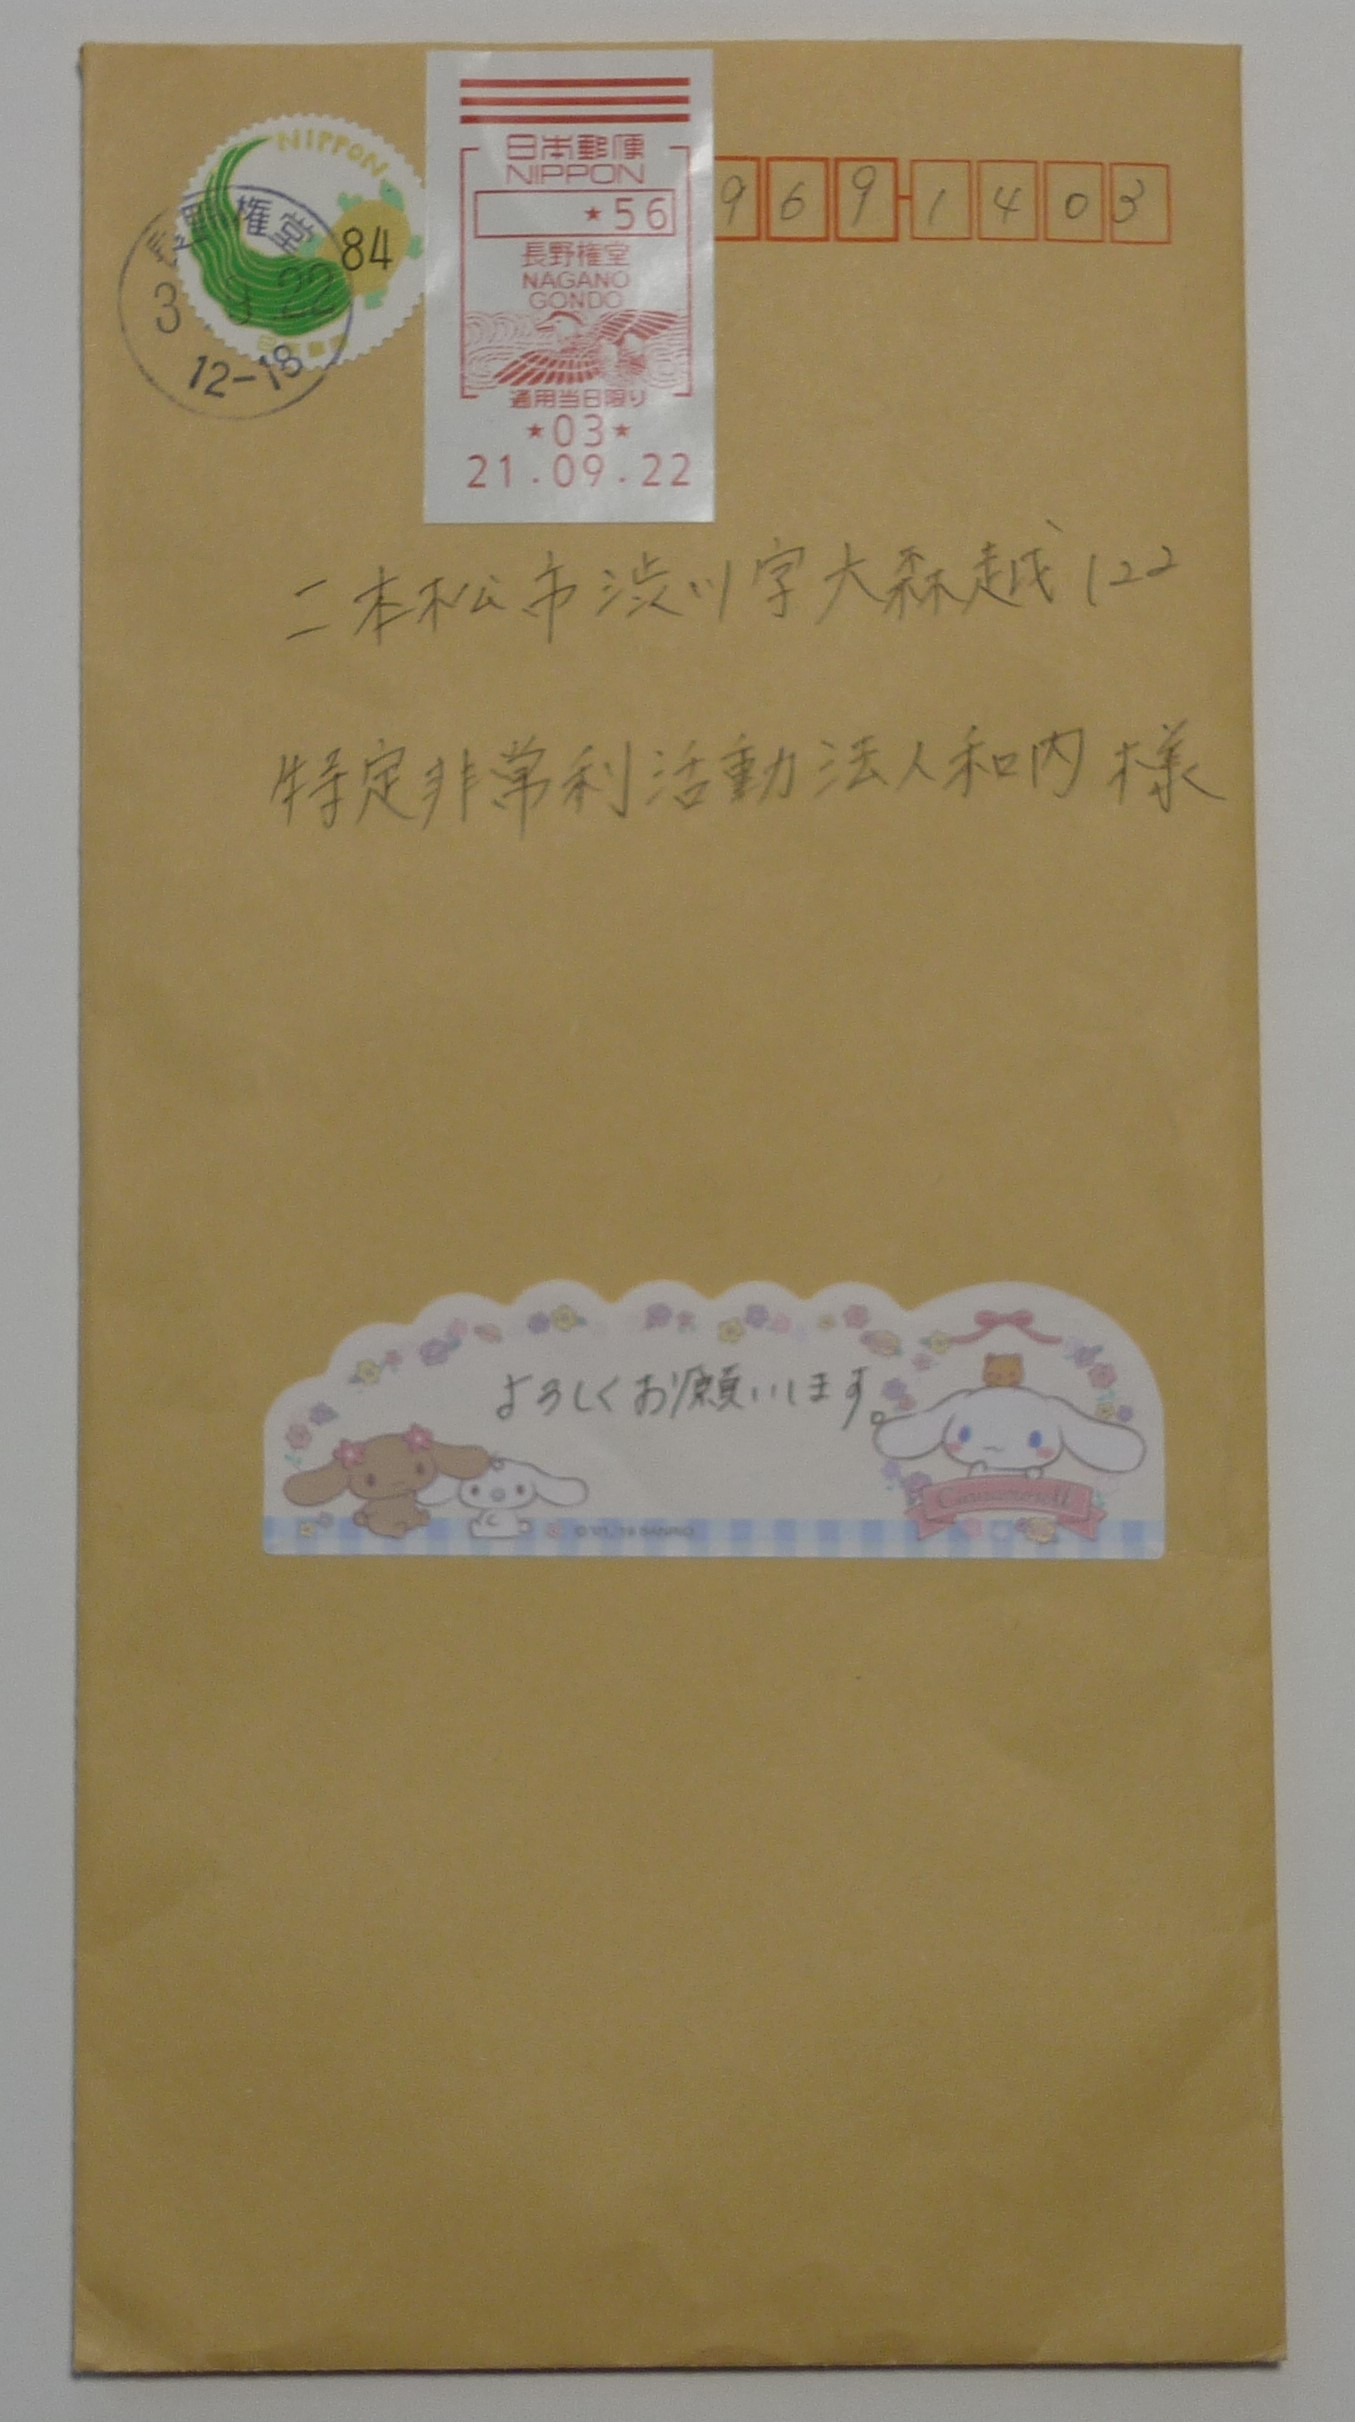 NIPPON
84
野権堂
3 9.22
12-18
日本郵便
NIPPON
★56
長野権堂
NAGANO
GONDO
通用当日限り
★03★
21.09.22
969-1403
二本松市渋川字大森越122
特定非常利活動法人和内 様
よろしくお願いします。
Cinnamoroll